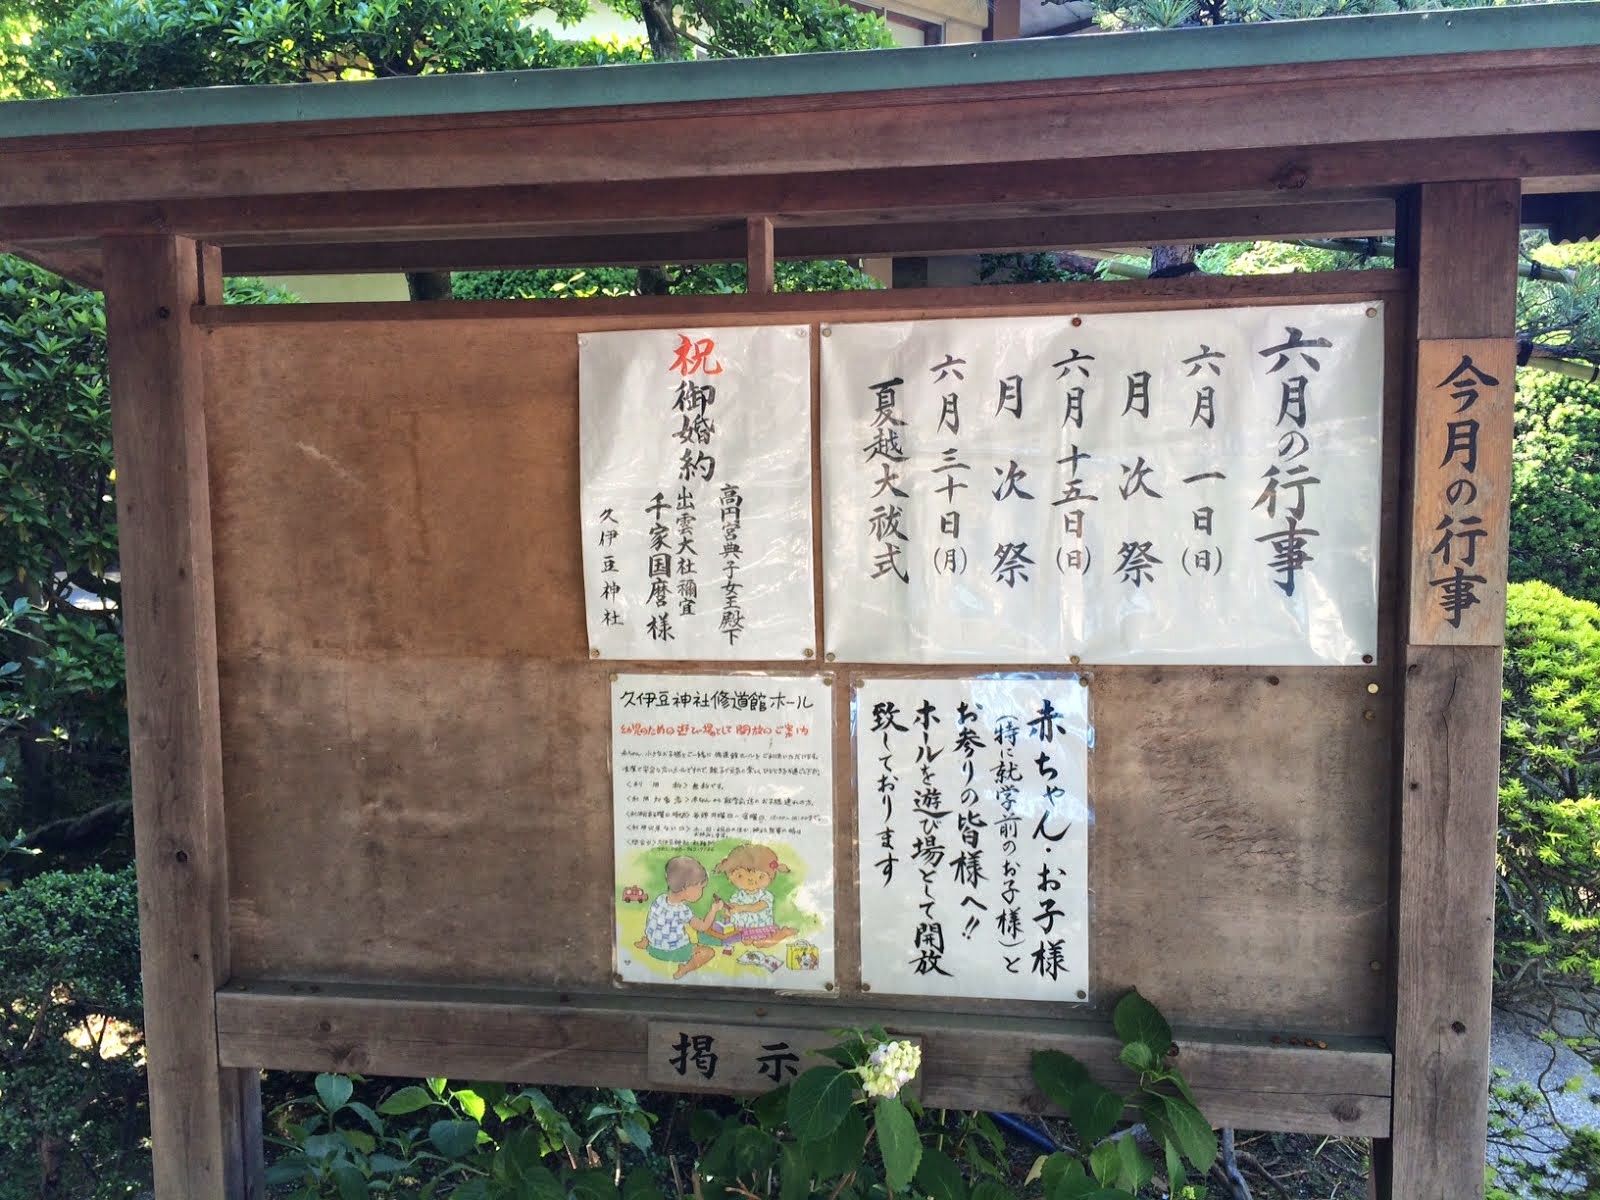 今月の行事
六月の行事
六月一日(日)
月次祭
六月十五日(日)
月次祭
六月三十日(月)
夏越大祓式
祝御婚約
高円宮典子女王殿下
出雲大社禰宜
千家国麿様
久伊豆神社
赤ちゃん・お子様
(特に就学前のお子様)と
お参りの皆様へ!!
ホールを遊び場として開放
致しております
久伊豆神社修道館ホール
幼児のための遊び場として開放のご案内
掲示